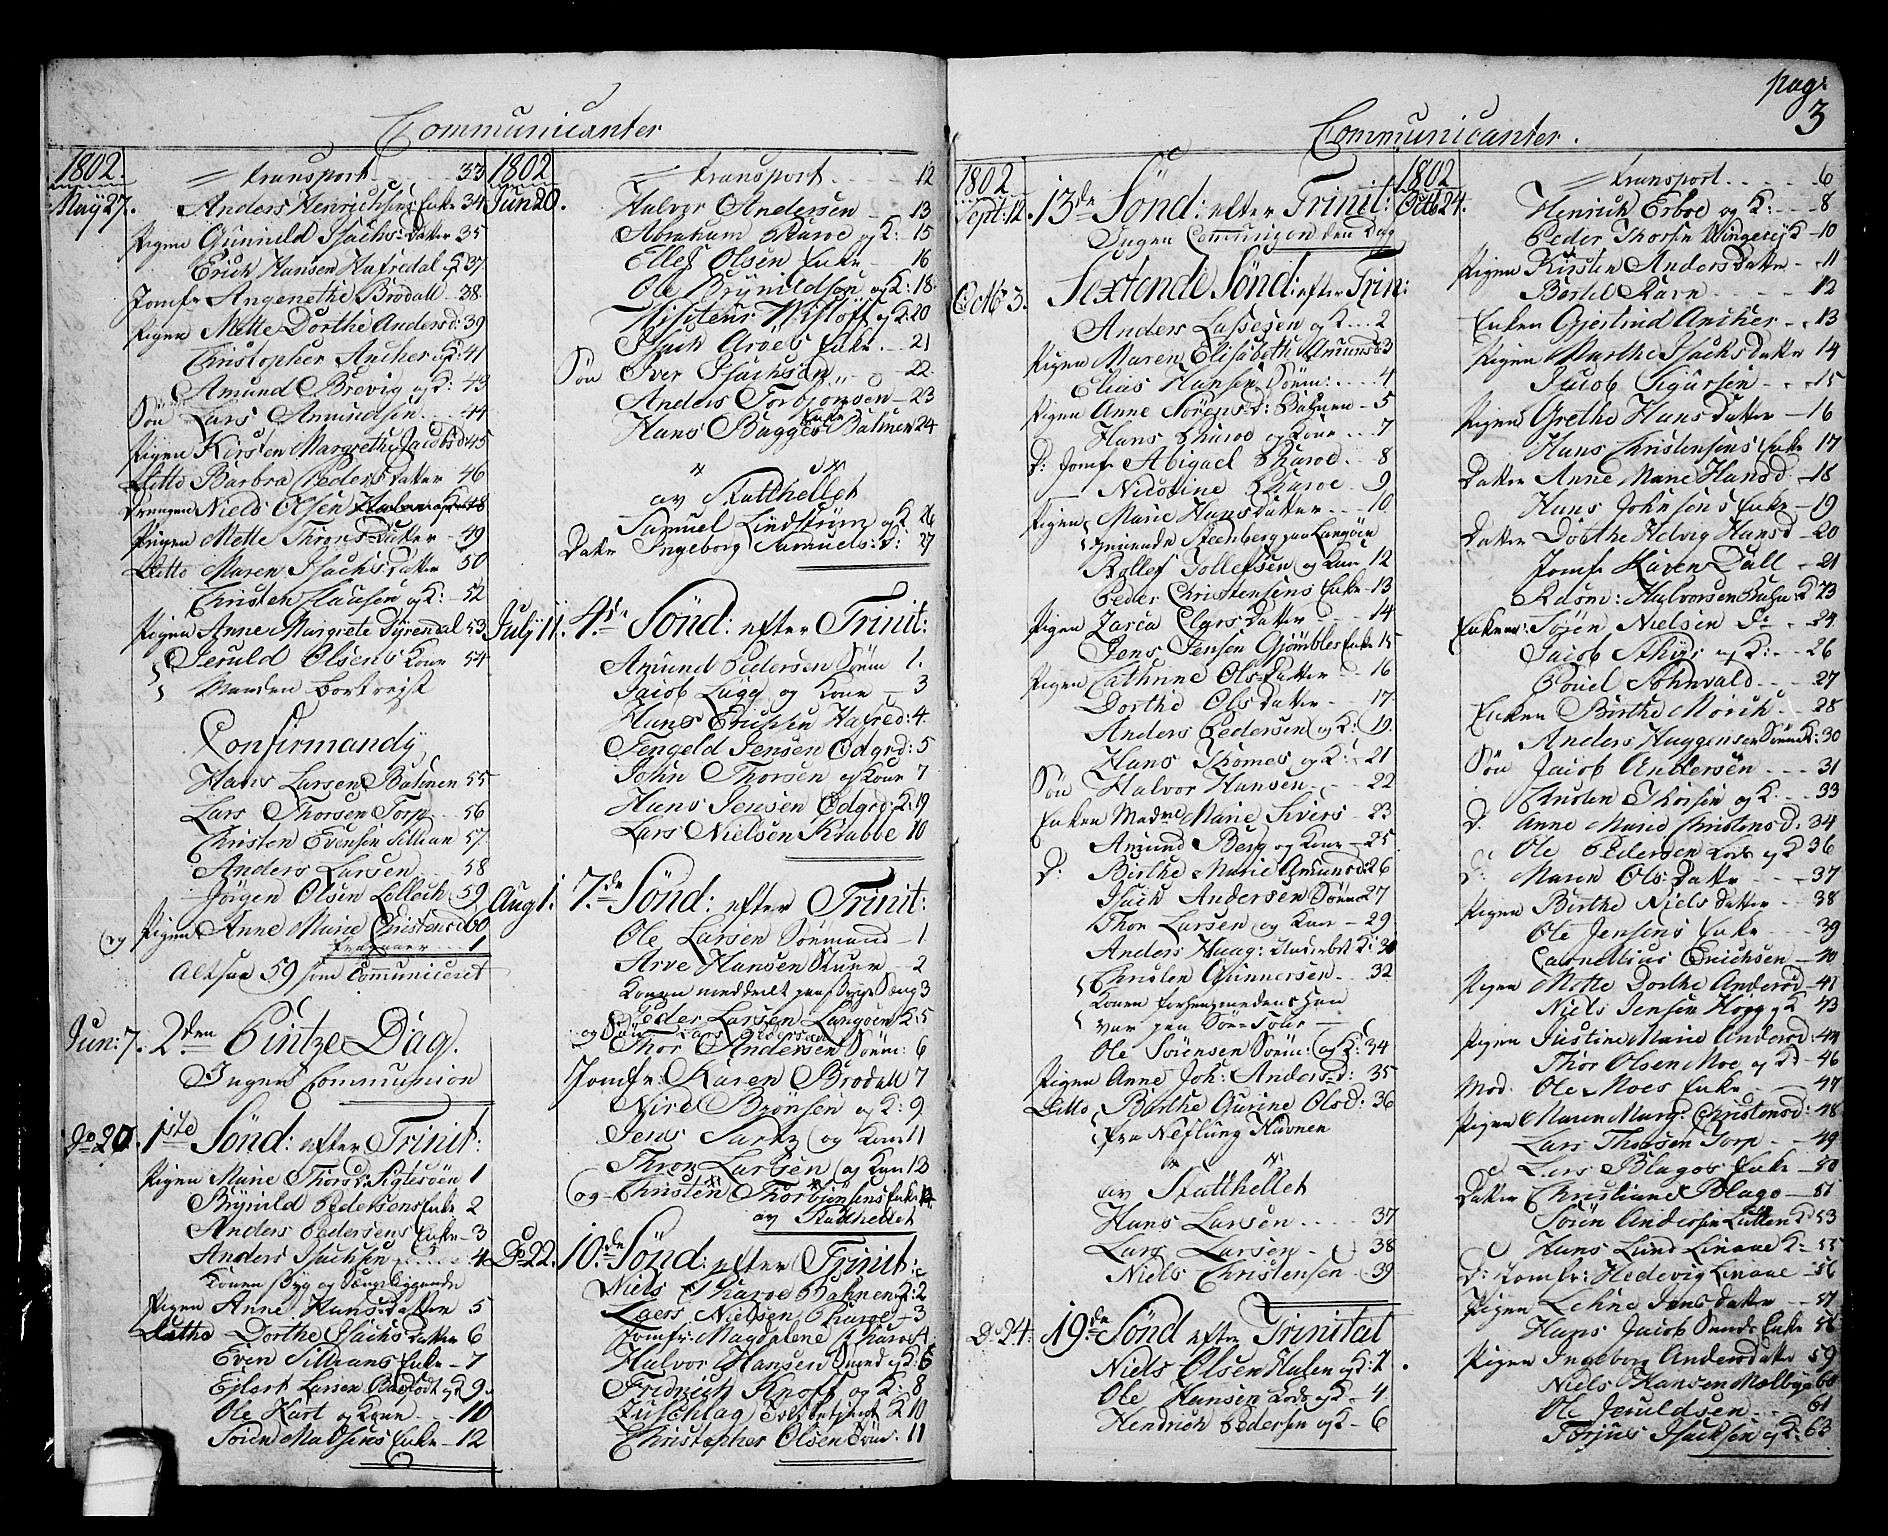 Communicanter
1802.
transport 33
May 27. Anders Henrichsens Enke 34
Pigen Gunnild Isachs Datter 35
Erich Hansen Hafredal og K 37
Jomfr Angenethe Brodall 38
Pigen Mette Dorthe Andersd: 39
Christopher Ancher og K: 41
Amund Brevig og K: 43
Søn Lars Amundsen 44
Pigen Kirsten Margrethe Jacobsd: 45
Ditto Barbra Peders datter 46
Drengen Niels Olsen 48
Pigen Mette Throns Datter 49
Ditto Maren Isachs datter 50
Christen Clausen og K: 52
Pigen Anne Margrete Dyrendal 53
Jeruld Olsens Kone 54
Manden bortrejst
Confirmandy
Hans Larsen Bahnen 55
Lars Thorsen Torp 56
Christen Evensen Sillian 57
Anders Larsen 58
Jørgen Olsen 59
og Pigen Anne Marie Christensd 60
1
Altsaa 59 som Communiceret
Jun: 7. 2den Pintze Dag.
Ingen Communion
Do 20. 1ste Sønd: efter Trinit:
Pigen Marie Thorsd: 1
Brynild Pedersens Enke 2
Anders Pedersens Enke 3
Anders Isachsen 4
Konen syg og Sængeliggende
Pigen Anne Hans datter 5
Ditto Dorthe Isachs datter 6
Even Sillians Enke 7
Ejlert Larsen og K 9
Ole Hart og Kone 10
Søren Madsens Enke 12
1802
transport 12
Jun 20. Halvor Andersen 13
Abraham Charoe og K: 15
Ellef Olsen Enke 16
Ole Brynildsen og K: 18
Wisiteur Wifløff og K: 20
Isach Aroes Enke 21
Søn Iver Isachsen 22
Anders Torbjønsen 23
Hans Bagges Enke Bahnen 24
av Statthellet
Samuel Lindstrøm og K 26
Datter Ingeborg Samuels: d: 27
July 11. 4de Sønd: efter Trinit:
Amund Pedersen Sønm 1.
Jacob Lugg og Kone 3
Hans Erichsen Hafred: 4.
Tengeld Jensen Ødgrd: 5
John Thorsen og Kone 7
Hans Jensen Ødgrd: K: 9
Lars Nielsen Krabbe 10
Aug 1. 7de Sønd: efter Trinit:
Ole Larsen Sønmand 1.
Arve Hansen Stuer 2
Konen meddeelt paa Syge Sæng 3
Peder Larsen Langøen K: 5
og Søn Lars Pedersen
Thor Andersen Sønm: 6
Jomfr: Karen Brodall 7
Nire Bjønsen og K: 9
Jens Sartz og Kone 11
Thron Larsen og Kone 13
og Christen Thorbjønsens Enke 14
av Statthellet
Do 22. 10de Sønd: efter Trinit:
Niels Charoe Bahnen K: 2
Laers Nielsen Charoe 3
Jomfr: Magdalene Charoe 4
Halvor Hansen Smed og K: 6
Fridrich Knoff og K: 8
Zuschlag Toldbetjent K 10
Christopher Olsen Sønm: 11
pag: 3
Communicanter.
1802
Sept: 12. 13de Sønd: efter Trinit:
Ingen Communion den Dag
Octb 3. Sextende Sønd: efter Trin:
Anders Lassesen og K 2
Pigen Maren Elisabeth Amunsd 3
Elias Hansen Sønm: 4
Pigen Anne Sørens d: Bahnen 5
Hans Charoe og Kone 7
D: Jomfr Abigael Charoe 8
Nicoline Charoe 9
Pigen Marie Hansdatter 10
tienende Steenberg paa Langøen
Rollef Tollefsen og Kone 12
Peder Christensens Enke 13
Pigen Zaria Elgrs Datter 14
Jens Jensen Gjømbles Enke 15
Pigen Cathrine Ols Datter 16
Dorthe Olsdatter 17
Anders Pedersen og K: 19.
Hans Thomes og K: 21
Søn Halvor Hansen 22
Enken Madme Marie Sivers 23
Amund Berg og Kone 25
D: Birthe Marie Amunsd: 26
Isach Andersen Sønm 27
Thor Larsen og Kone 29
Anders Haag: K: 30
Christen Gunnersen 32
Konen forhen meden han
var paa Søn-Tour
Ole Sørensen Sønm: og K: 34
Pigen Anne Joh: Andersd: 35
Ditto Birthe Gurine Olsd: 36
fra Neflung Havnen
av Statthellet
Hans Larsen 37
Lars Larsen 38
Niels Christensen 39
Do 24. 19de Sønd efter Trinitat
Niels Olsen Halen og K: 2.
Ole Hansen Lods og K 4.
Hendrich Pedersen og K 6
1802
transport 6
Octb 24. Henrich Erboe og K: 8
Peder Thorsen Wingerej K 10
Pigen Kirsten Andersdatter 11
Bertel Karn 12
Enken Gjertrud Ancher 13
Pigen Marthe Isachs datter 14
Jacob Sigursen 15
Pigen Grethe Hans datter 16
Hans Christensens Enke 17
Datter Anne Marie Hansd 18
Hans Johnsens Enke 19
Datter Dorthe Helvig Hansd 20
Jomfr Karen Dall 21
Adsm: Halvorsen Bahn: K 23
Enken: Søren Nielsen Do 24
Jacob og K: 26
Povel Sohnvald 27
Enken Birthe Morck 28
Anders Haggensen Sønm K: 30
Søn Jacob Andersen 31
Christen Thorsen og K 33
D. Anne Marie Christensd: 34
Ole Pedersen Lods og K 36
D: Maren Ols Datter 37
Pigen Birthe Niels datter 38
Ole Jensens Enke 39
Carnellius Erichsen 40
Pigen Mette Dorthe Andersd 41
Niels Jensen Hogg og K 43
Pigen Justine Marie Andersd 44
Thor Olsen Moe og K 46
Mod. Ole Moes Enke 47
Pigen Maren Marg: Christensd: 48
Lars Thorsen Torp 49
Lars Blagos Enke 50
Datter Christiane Blago 51
Søren Andersen Lutten K: 53
Hans Lund Linaae K: 55
D: Jomfr: Hedevig Linaae 56
Pigen Lehne Jens datter 57
Hans Jacob Sands Enke 58
Pigen Ingeborg Andersdatter 59
Niels Hansen Melbye 60
Ole Jeruldsen 61
Torjus Isachsen og K: 63